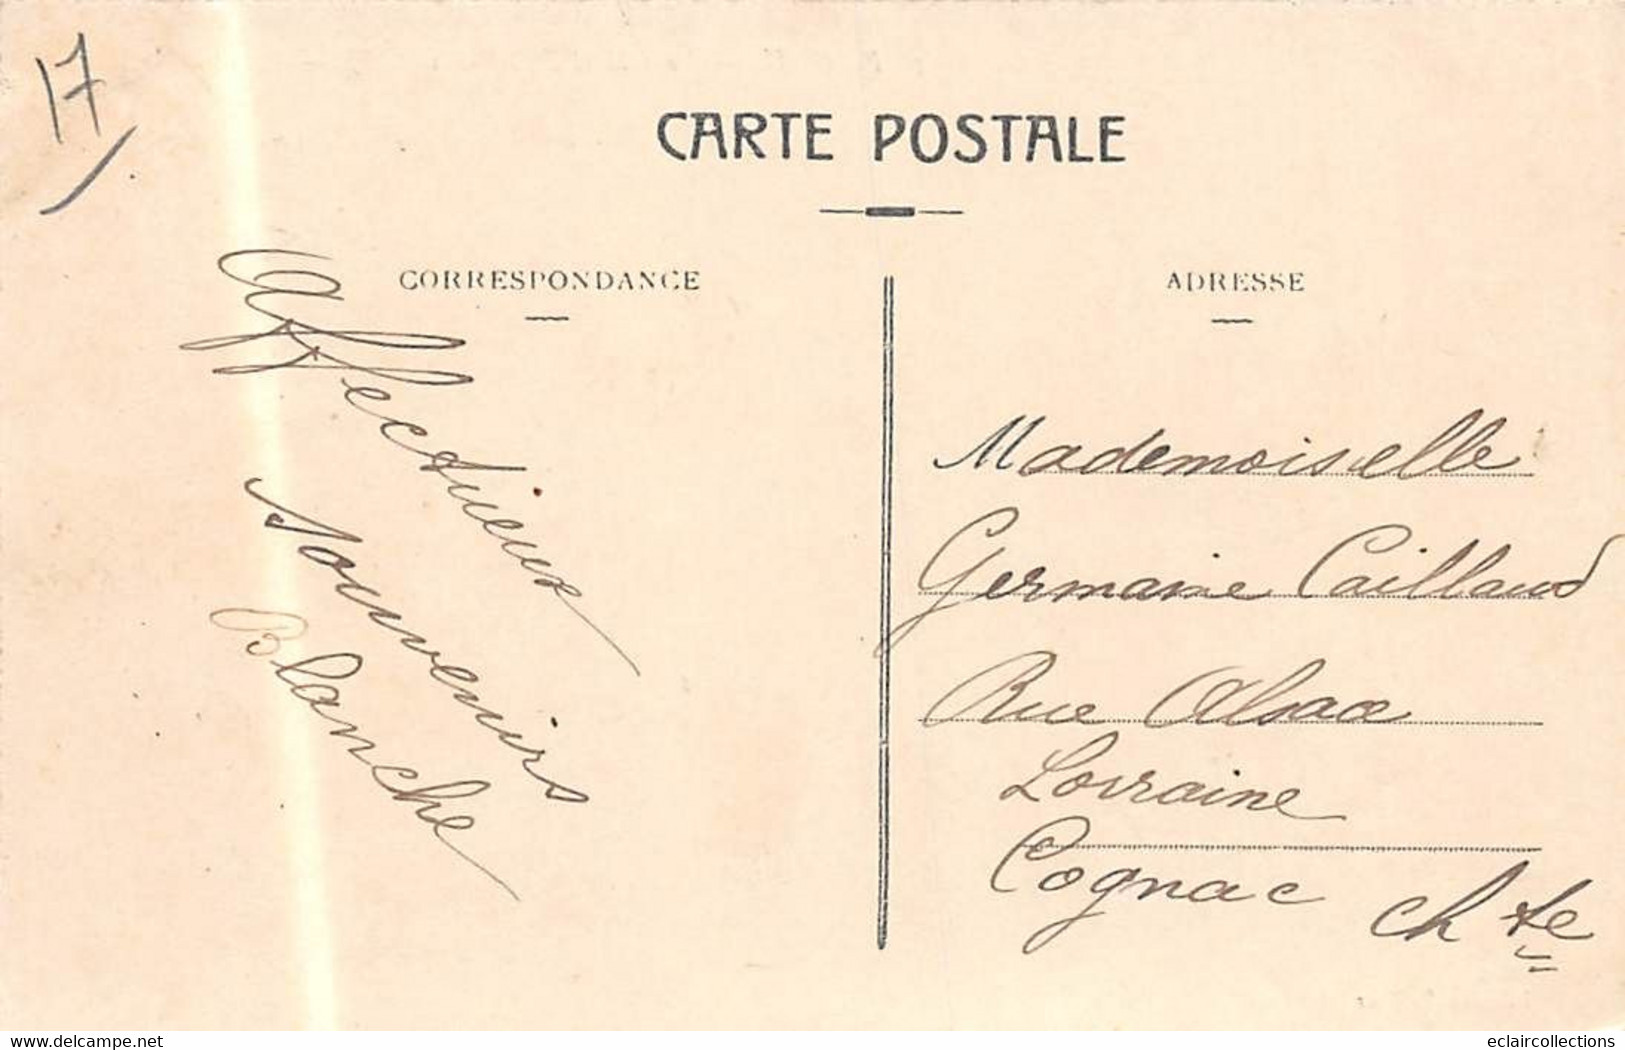 17
CARTE POSTALE
CORRESPONDANCE
Affectieux
Souvenirs
Blanche
ADRESSE
Mademoiselle
Germaine Caillaud
Rue Alsace
Lorraine
Cognac Ch te
delcampe.net
eclaircollections